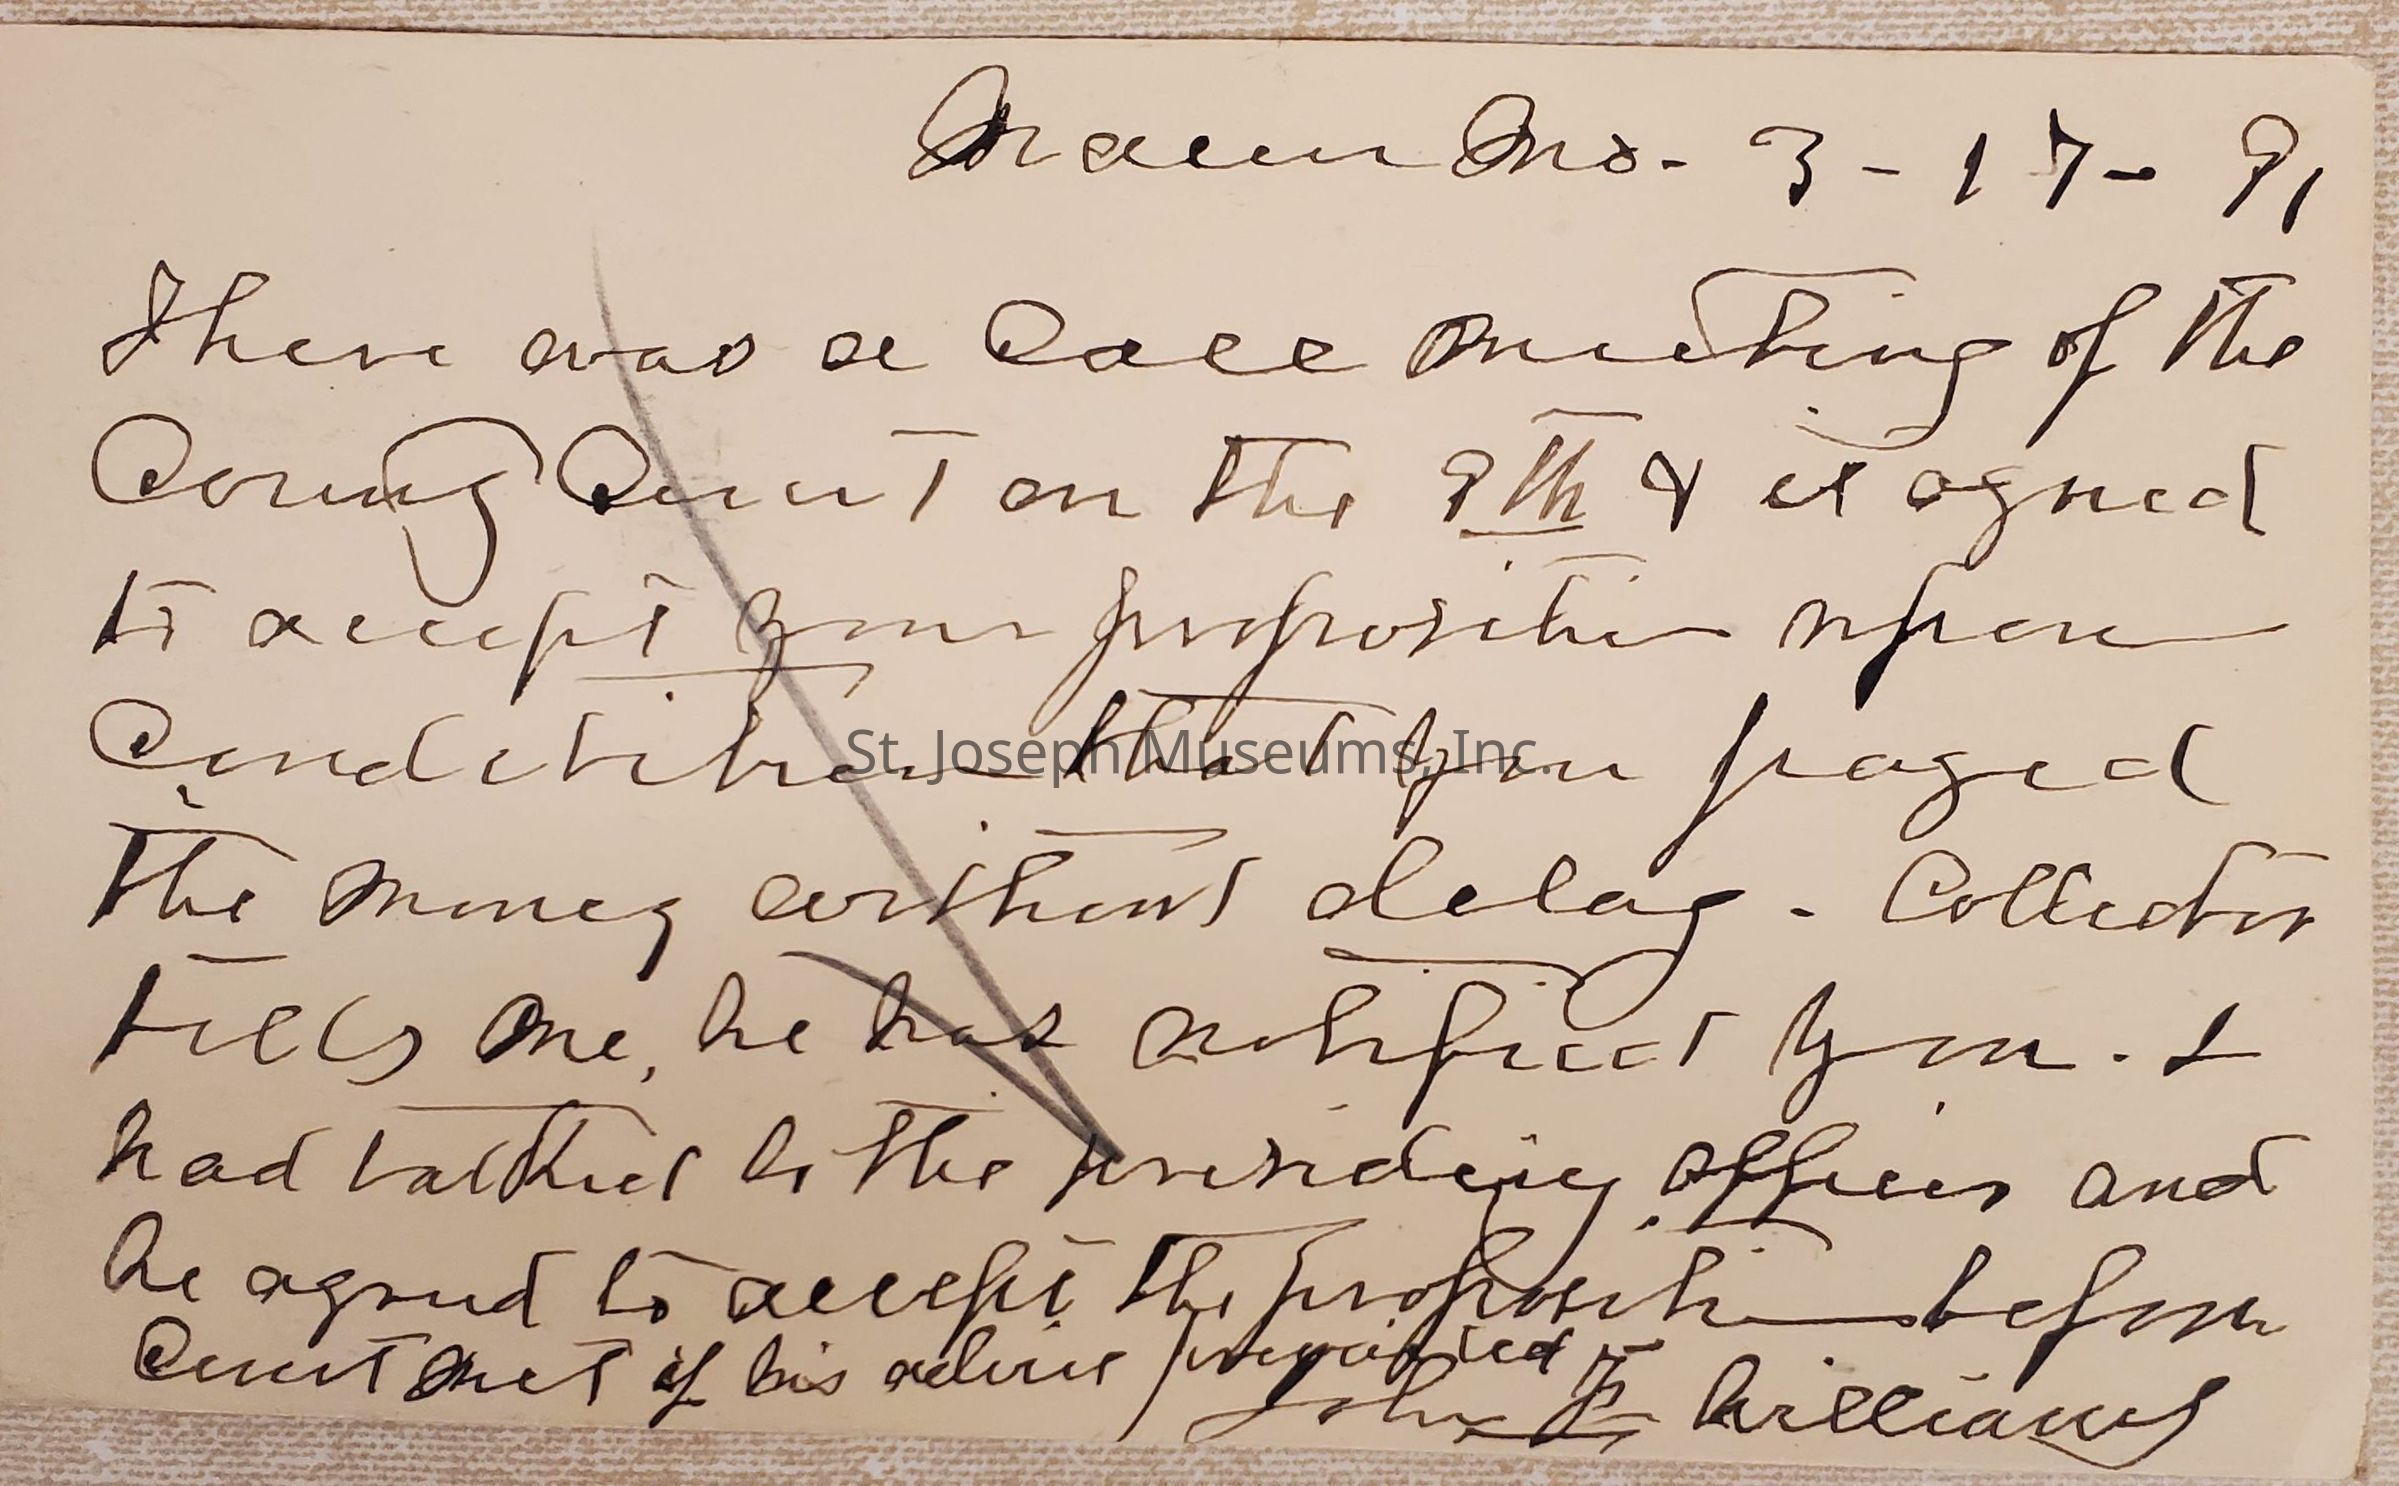 Macon Mo. 3-17-91
There was a Call meeting of the
County Court on the 9th & it agreed
to accept your proposition upon
Condition that you payed
the money without delay. Collector
tells me, he has notified you. I
had talked to the presiding officer and
he agreed to accept the proposition before
Court met if his advice prevailed
John F. Williams
St. Joseph Museums, Inc.